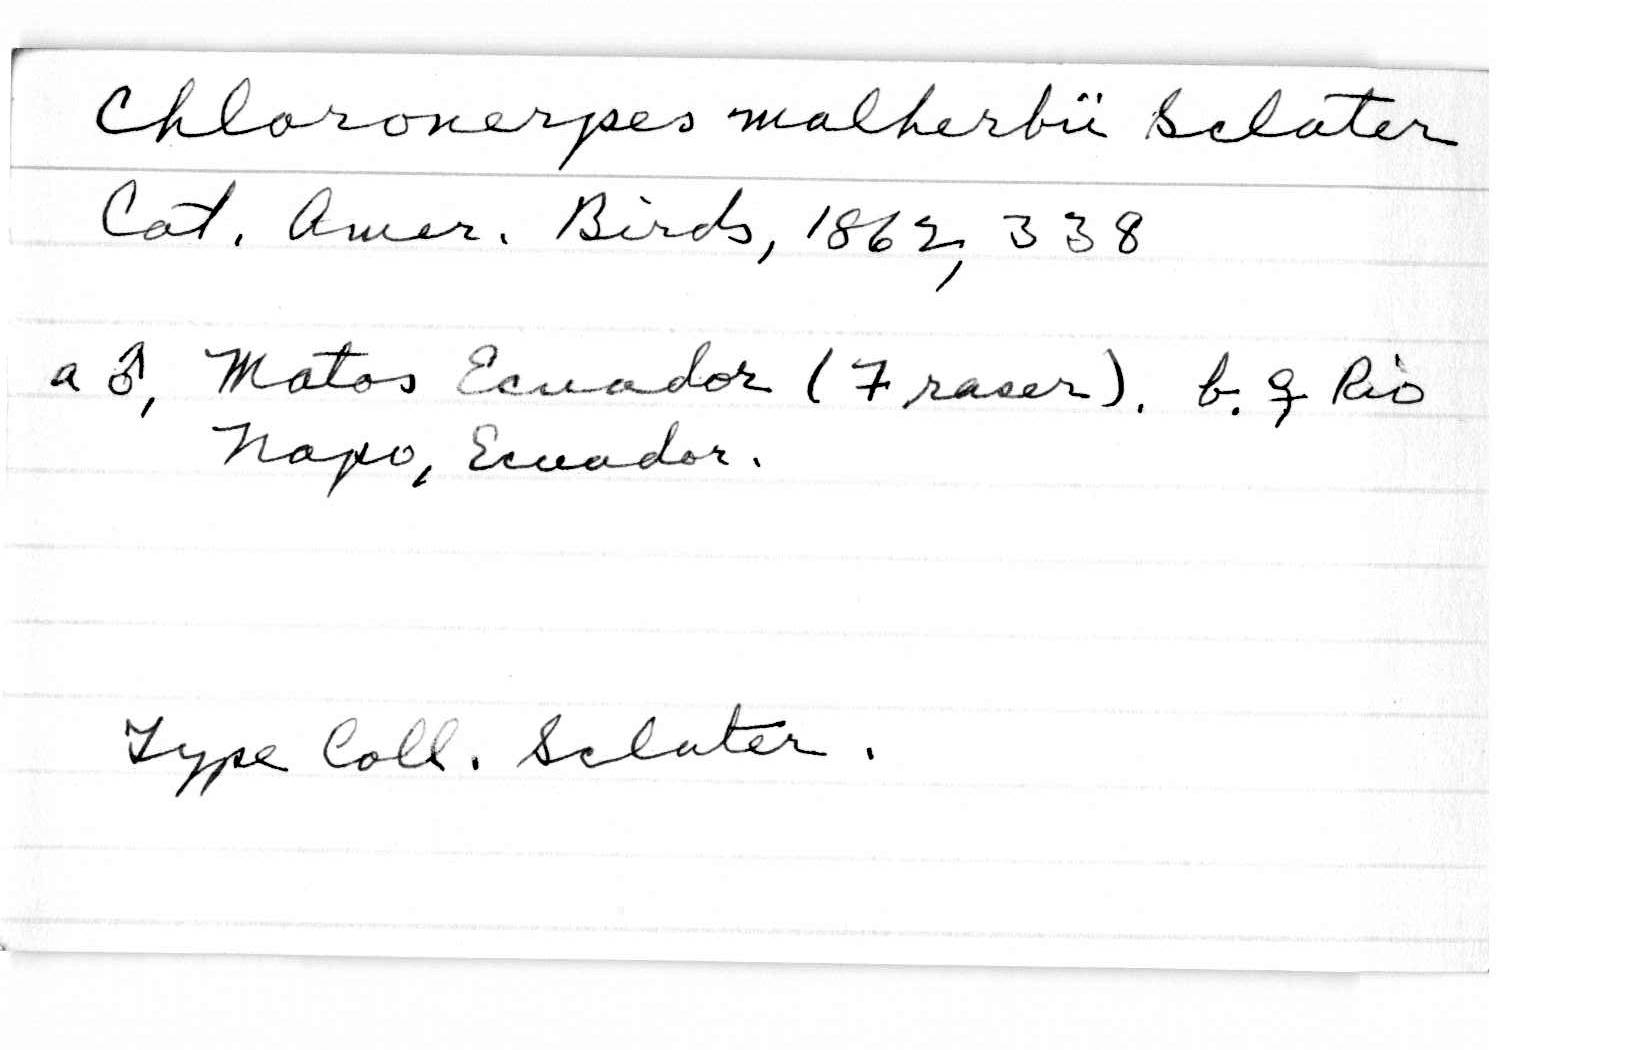 Chloronerpes malherbii Sclater
Cat. Amer. Birds, 1862, 338
a ♂, Matos Ecuador (Fraser). b. ♀ Rio
Napo, Ecuador.
Type Coll. Sclater.